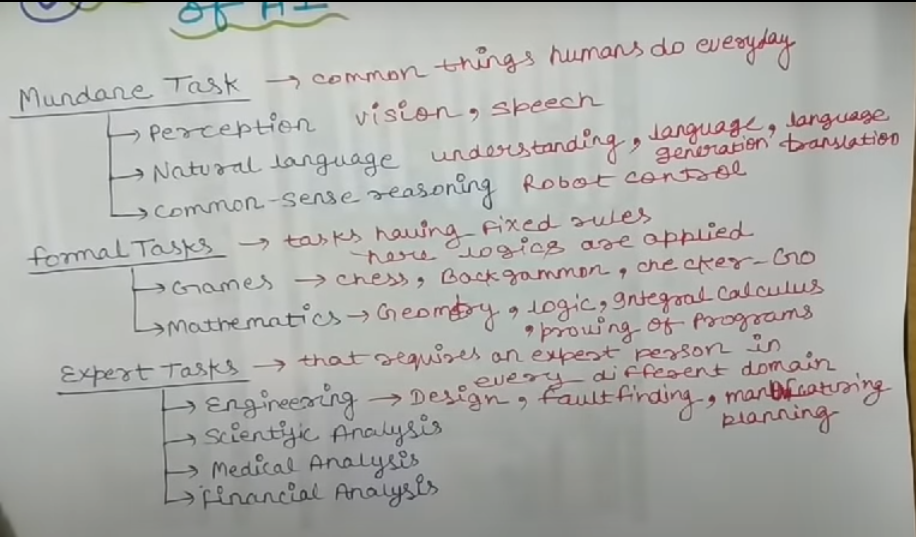 of AI
Mundane Task → common things humans do everyday
→ Perception vision, speech
→ Natural language understanding, language generation, language translation
→ common-sense reasoning Robot control
formal Tasks → tasks having fixed rules
here logics are applied
→ Games → chess, Backgammon, checker-Go
→ Mathematics → Geomtry, logic, Integral calculus
, proving of Programs
Expert Tasks → that requires an expert person in
every different domain
→ Engineering → Design, fault finding, manufcaturing
planning
→ Scientific Analysis
→ Medical Analysis
→ financial Analysis